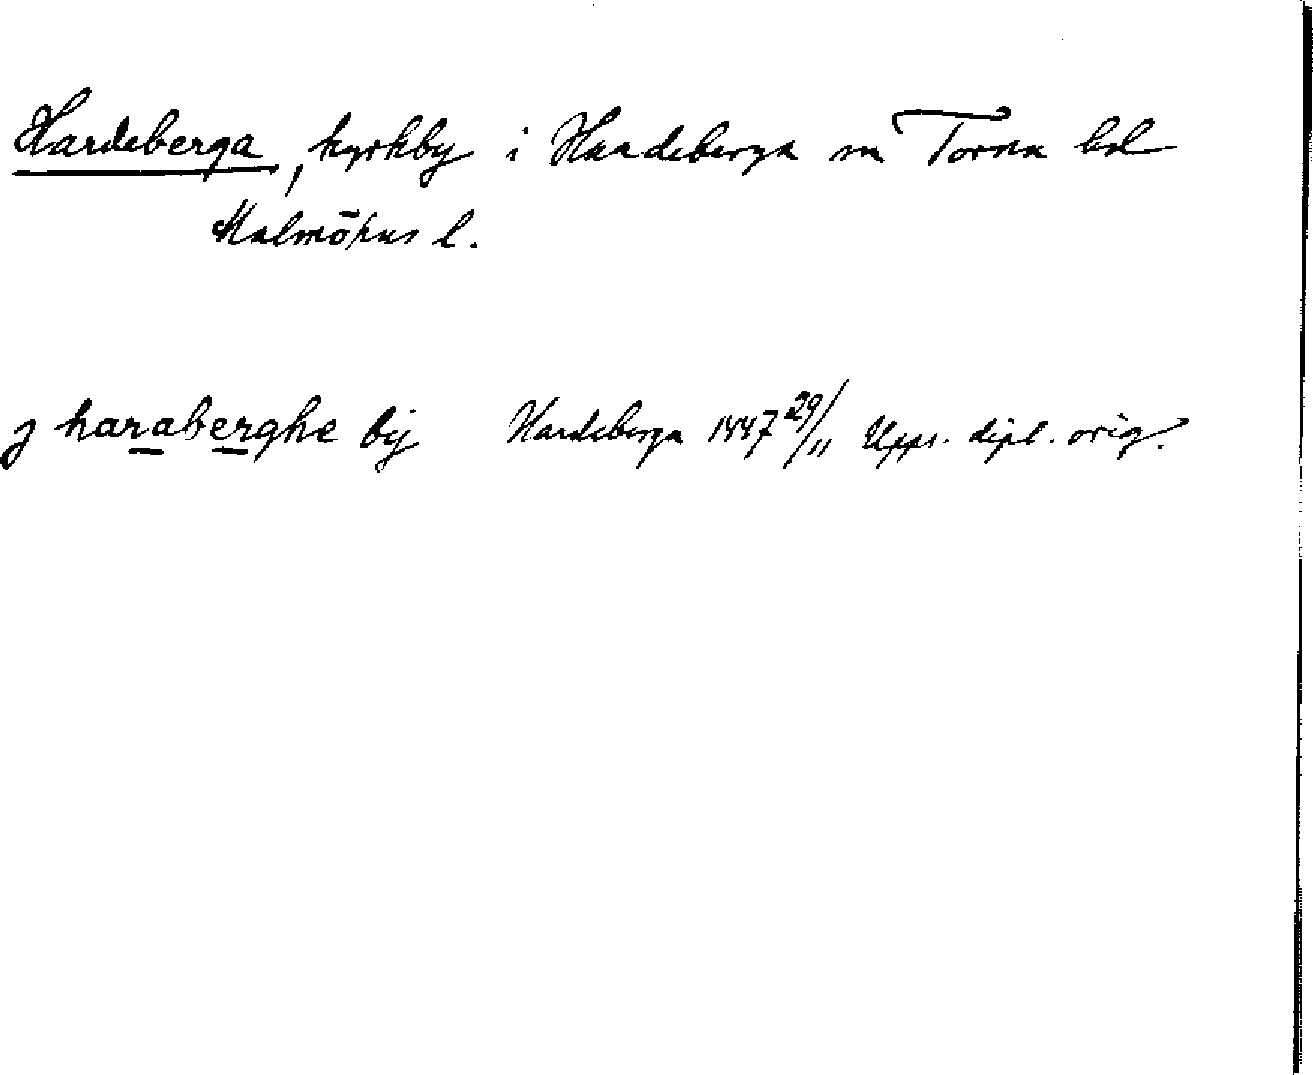 Hardeberga, kyrkby i Hardeberga sn Torna hd
Malmöhus l.
j haraberghe bij Hardeberga 1447 29/11 Upps. dipl. orig.